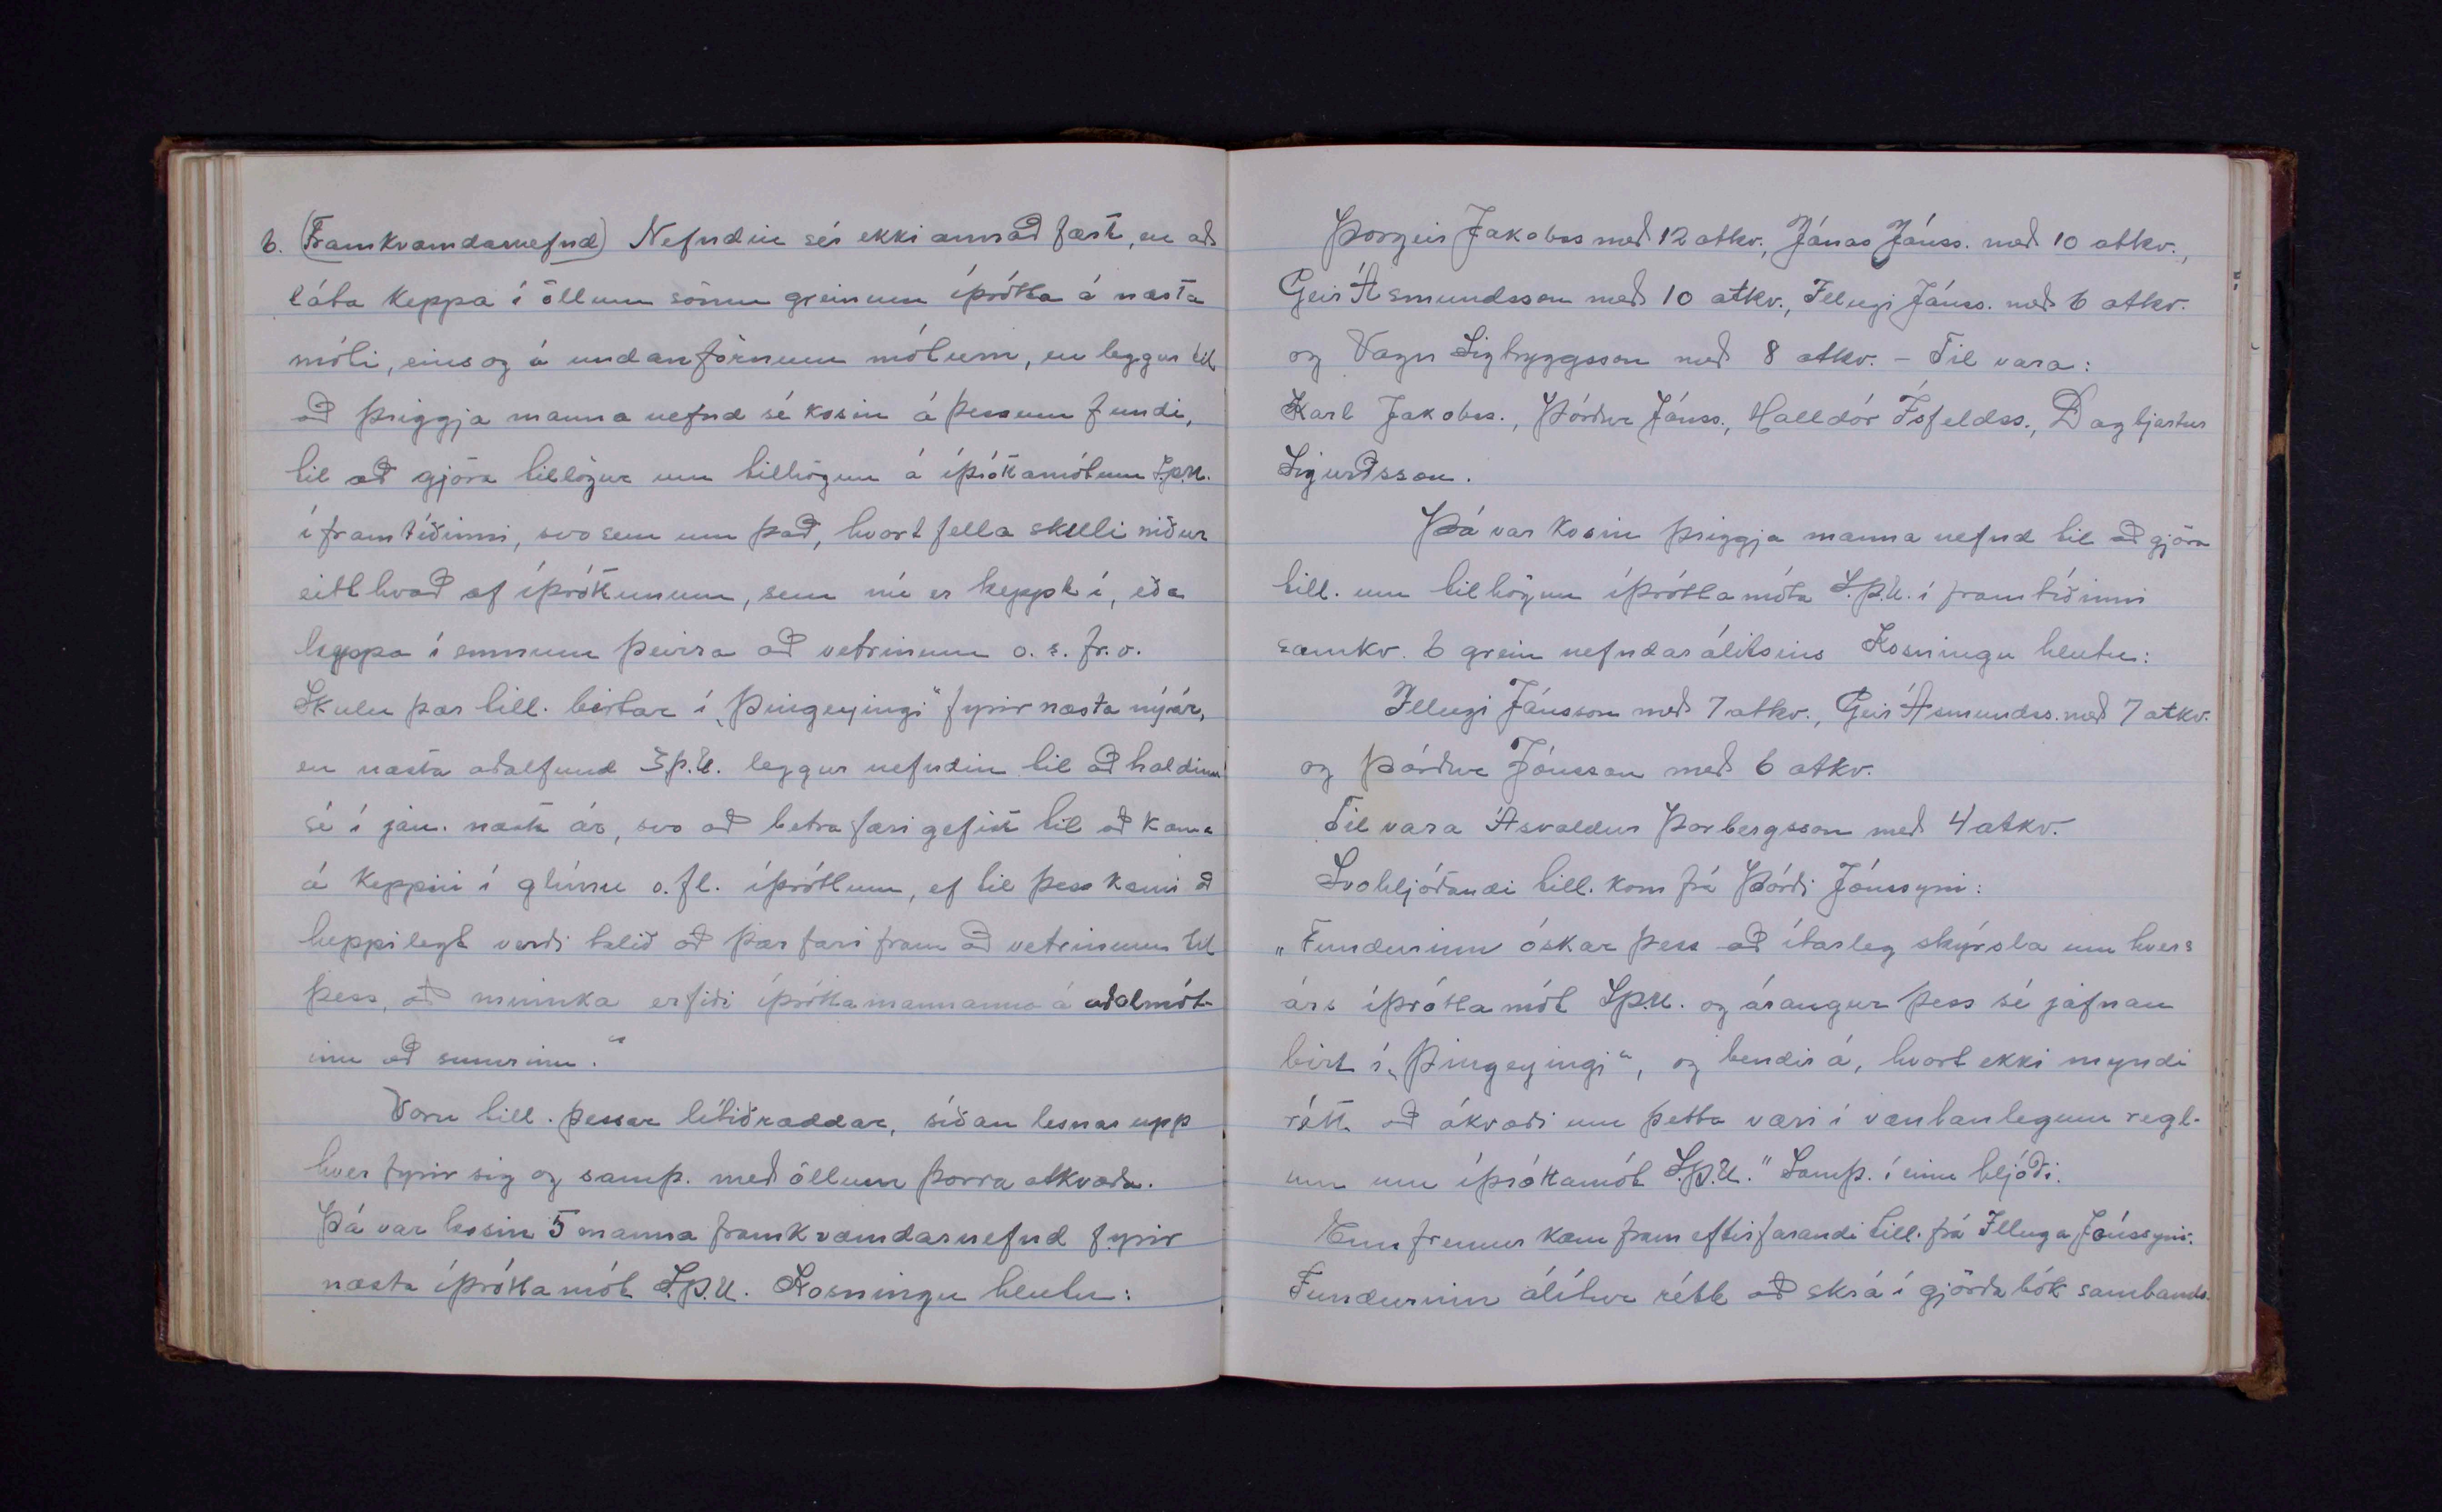 6. (Framkvæmdarnefnd) Nefndin sér ekki annað fært, en að
láta keppa í öllum sömu greinum íþrótta á næsta
móti, eins og á undanförnum mótum, en leggur til
að þriggja manna nefnd sé kosin á þessum fundi,
til að gjöra tillögur um tilhögun á íþróttamótum S.þ.U.
í framtíðinni, svo sem um það, hvort fella skuli niður
eitthvað af íþróttunum, sem nú er keppt í, eða
keppa í sumum þeirra að vetrinum o. s. fr. v.
Skulu þær till. birtar í „Þingeyingi“ fyrir næsta nýár,
en næsta aðalfund S.þ.U. leggur nefndin til að haldinn
sé í jan. næsta ár, svo að betra færi gefist til að koma
á keppni í glímu o. fl. íþróttum, ef til þess kæmi að
heppilegt verði talið að þær fari fram að vetrinum til
þess, að minnka erfiði íþróttamannanna á aðalmót-
inu að sumrinu.“
Voru till. þessar lítið ræddar, síðan lesnar upp
hver fyrir sig og samþ. með öllum þorra atkvæða.
Þá var kosin 5 manna framkvæmdarnefnd fyrir
næsta íþróttamót S.Þ.U. Kosningu hlutu:
Þorgeir Jakobss með 12 atkv., Jónas Jónss. með 10 atkv.,
Geir Ásmundsson með 10 atkv., Illugi Jónss. með 6 atkv.
og Vagn Sigtryggsson með 8 atkv. – Til vara:
Karl Jakobss., Þórður Jónss., Halldór Ísfeldss., Dagbjartur
Sigurðsson.
Þá var kosin þriggja manna nefnd til að gjöra
till. um tilhögun íþróttamóta S.Þ.U. í framtíðinni
samkv. 6 grein nefndarálitsins Kosningu hlutu:
Illugi Jónsson með 7 atkv., Geir Ásmundss. með 7 atkv.
og Þórður Jónsson með 6 atkv.
Til vara Ásvaldur Þorbergsson með 4 atkv.
Svohljóðandi till. kom frá Þórði Jónssyni:
„Fundurinn óskar þess að ítarleg skýrsla um hvers
árs íþróttamót S.Þ.U. og árangur þess sé jafnan
birt í „Þingeyingi“, og bendir á, hvort ekki myndi
rétt að ákvæði um þetta væri í væntanlegum regl-
um um íþróttamót S.Þ.U.“ Samþ. í einu hljóði.
Enn fremur kom fram eftirfarandi till. frá Illuga Jónssyni.
Fundurinn álítur rétt að skrá í gjörðabók sambands-